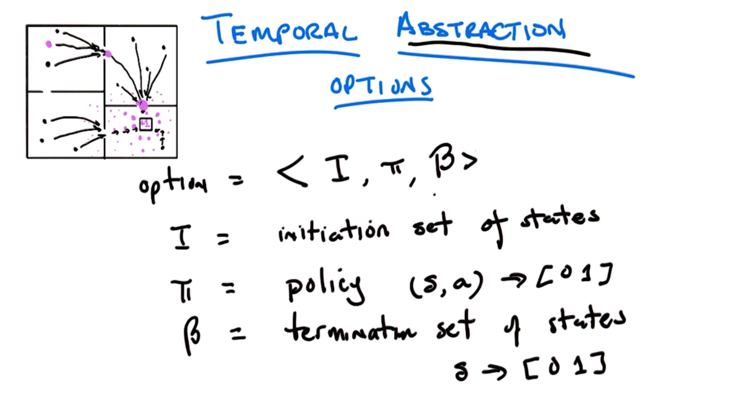 TEMPORAL ABSTRACTION
OPTIONS
option = < I, π, β>
I = initiation set of states
π = policy (s, a) → [0 1]
β = termination set of states
s → [0 1]